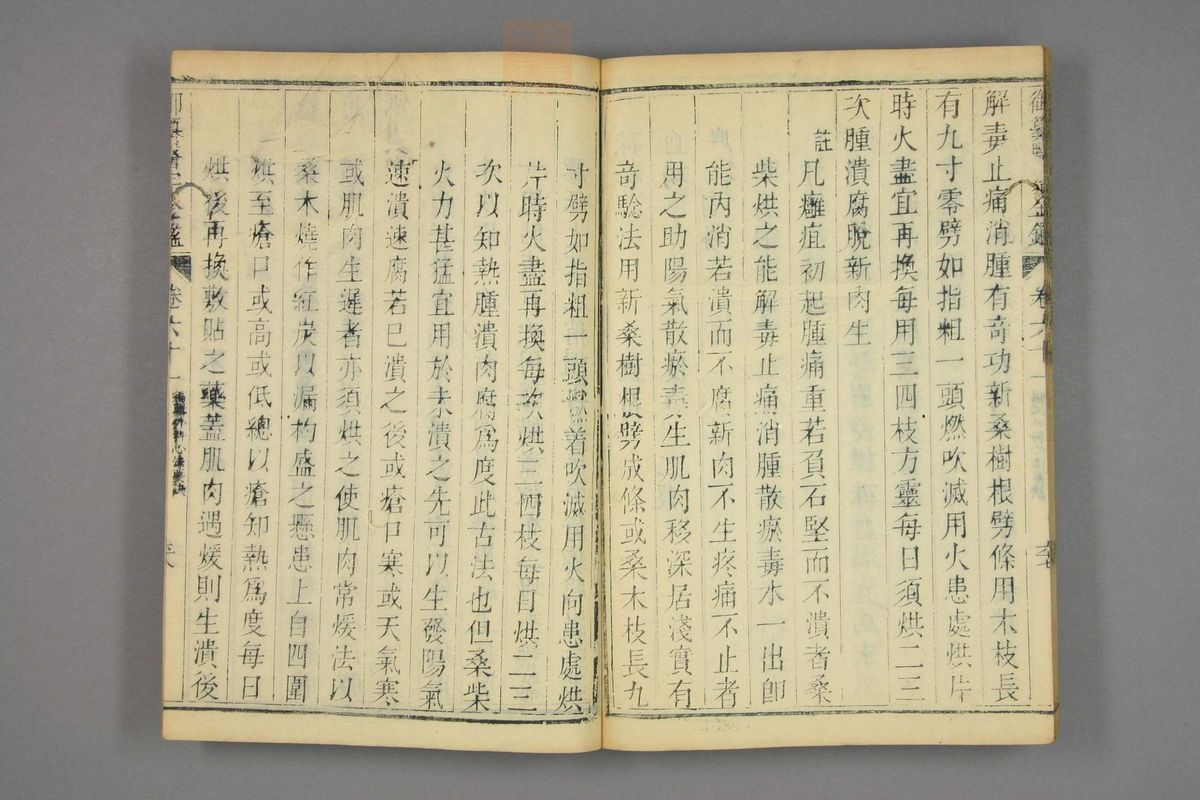 解毒止痛消腫有奇功新桑樹根劈條用木枝長
有九寸零劈如指粗一頭燃吹滅用火患處烘片
時火盡宜再換每用三四枝方靈每日須烘二三
次腫潰腐脫新肉生
註凡癰疽初起腫痛重若負石堅而不潰者桑
柴烘之能解毒止痛消腫散瘀毒水一出卽
能內消若潰而不腐新肉不生疼痛不止者
用之助陽氣散瘀毒生肌肉移深居淺實有
奇驗法用新桑樹根劈成條或桑木枝長九
寸劈如指粗一頭燃着吹滅用火向患處烘
片時火盡再換每次烘三四枝每日烘二三
次以知熱腫潰肉腐爲度此古法也但桑柴
火力甚猛宜用於未潰之先可以生發陽氣
速潰速腐若已潰之後或瘡口寒或天氣寒
或肌肉生遲者亦須烘之使肌肉常煖法以
桑木燒作紅炭以漏杓盛之懸患上自四圍
烘至瘡口或高或低總以瘡知熱爲度每日
烘後再換敷貼之藥蓋肌肉遇煖則生潰後
卷六十一
編輯外科心法要訣